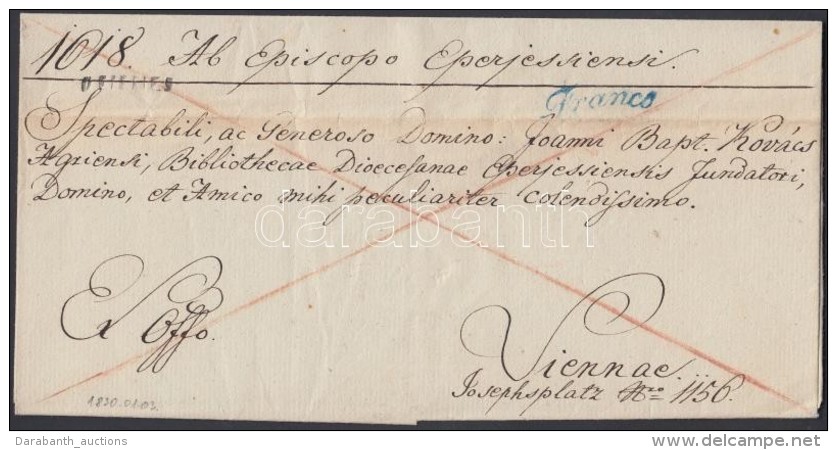 1618. Ab Episcopo Eperjessiensi.
Franco
Spectabili, ac Generoso Domino: Joanni Bapt. Kovács
Agriensi, Bibliothecae Dioecesanae Eperjessiensis Fundatori,
Domino, et Amico mihi peculiariter colendissimo.
darabanth
Ex Offo.
Viennae.
Josephsplatz Nro 1156.
1830.01.03.
Darabanth_auctions
www.delcampe.net